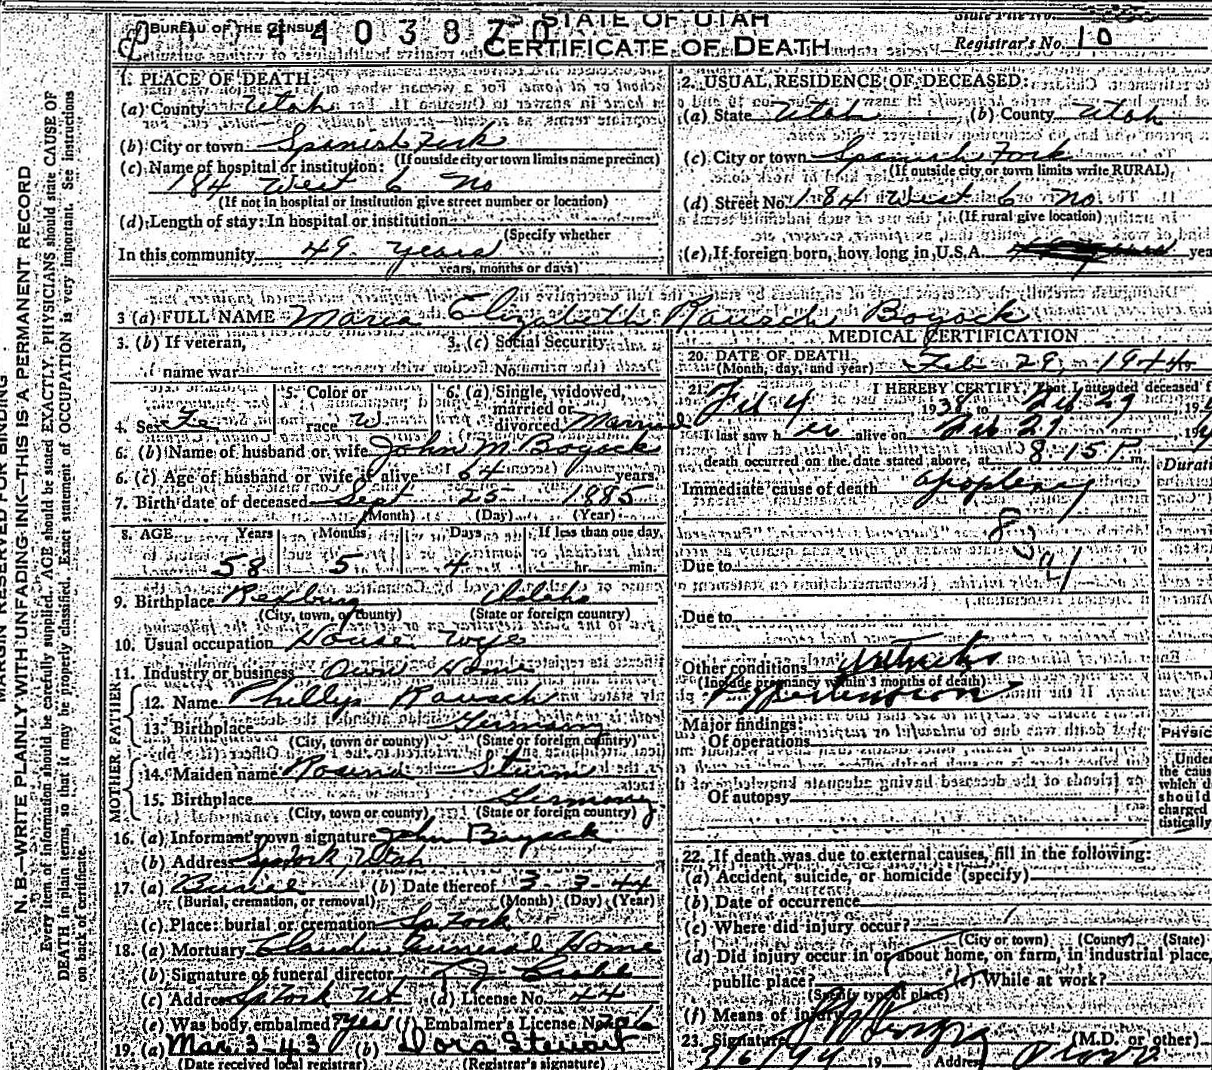 BUREAU OF THE CENSUS
4 4 0 3 8 7 0
STATE OF UTAH
CERTIFICATE OF DEATH
State File No.
Registrar's No. 10
MARGIN RESERVED FOR BINDING
N. B.—WRITE PLAINLY WITH UNFADING INK—THIS IS A PERMANENT RECORD
Every item of information should be carefully supplied. AGE should be stated EXACTLY. PHYSICIANS should state CAUSE OF
DEATH in plain terms, so that it may be properly classified. Exact statement of OCCUPATION is very important. See instructions
on back of certificate.
1. PLACE OF DEATH:
(a) County Utah
(b) City or town Spanish Fork
(If outside city or town limits name precinct)
(c) Name of hospital or institution:
184 West 6 No
(If not in hospital or institution give street number or location)
(d) Length of stay: In hospital or institution
(Specify whether
In this community 49 years
years, months or days)
2. USUAL RESIDENCE OF DECEASED:
(a) State Utah (b) County Utah
(c) City or town Spanish Fork
(If outside city or town limits write RURAL)
(d) Street No. 184 West 6 No
(If rural give location)
(e) If foreign born, how long in U.S.A. yea
3 (a) FULL NAME Maria Elizabeth Rausch Boyack
3. (b) If veteran, 3. (c) Social Security
name war No.
4. Sex Fe 5. Color or race W 6. (a) Single, widowed, married or divorced Married
6. (b) Name of husband or wife John M. Boyack
6. (c) Age of husband or wife if alive 64 years.
7. Birth date of deceased Sept 25 1885
(Month) (Day) (Year)
8. AGE Years Months Days If less than one day,
58 5 4 hr. min.
9. Birthplace Rexburg Idaho
(City, town, or county) (State or foreign country)
10. Usual occupation House Wife
11. Industry or business Own Home
FATHER
12. Name Phillip Rausch
13. Birthplace Germany
(City, town or county) (State or foreign country)
MOTHER
14. Maiden name Rosina Sturm
15. Birthplace Germany
(City, town or county) (State or foreign country)
16. (a) Informant's own signature John Boyack
(b) Address Sp Fork Utah
17. (a) Burial (b) Date thereof 3-3-44
(Burial, cremation, or removal) (Month) (Day) (Year)
(c) Place: burial or cremation Sp Fork
18. (a) Mortuary Claudin Funeral Home
(b) Signature of funeral director
(c) Address Sp Fork Ut (d) License No. 44
(e) Was body embalmed? Yes (f) Embalmer's License No.
19. (a) Mar 3-43 (b) Dora Stewart
(Date received local registrar) (Registrar's signature)
MEDICAL CERTIFICATION
20. DATE OF DEATH Feb 29, 1944
(Month, day, and year)
21. I HEREBY CERTIFY, That I attended deceased f
Feb 4 1938 to Feb 29 19
I last saw her alive on Feb 29 19
death occurred on the date stated above, at 8-15 P m.
Durati
Immediate cause of death apoplexy
83
Due to
Due to
Other conditions arthritis
(Include pregnancy within 3 months of death)
Hypertension
Major findings:
Of operations
Of autopsy
PHYSIC
Under
the caus
which d
should
charged
tistically
22. If death was due to external causes, fill in the following:
(a) Accident, suicide, or homicide (specify)
(b) Date of occurrence
(c) Where did injury occur?
(City or town) (County) (State)
(d) Did injury occur in or about home, on farm, in industrial place,
public place? (e) While at work?
(Specify type of place)
(f) Means of injury
23. Signature (M.D. or other)
3/6/ 19 Address Provo